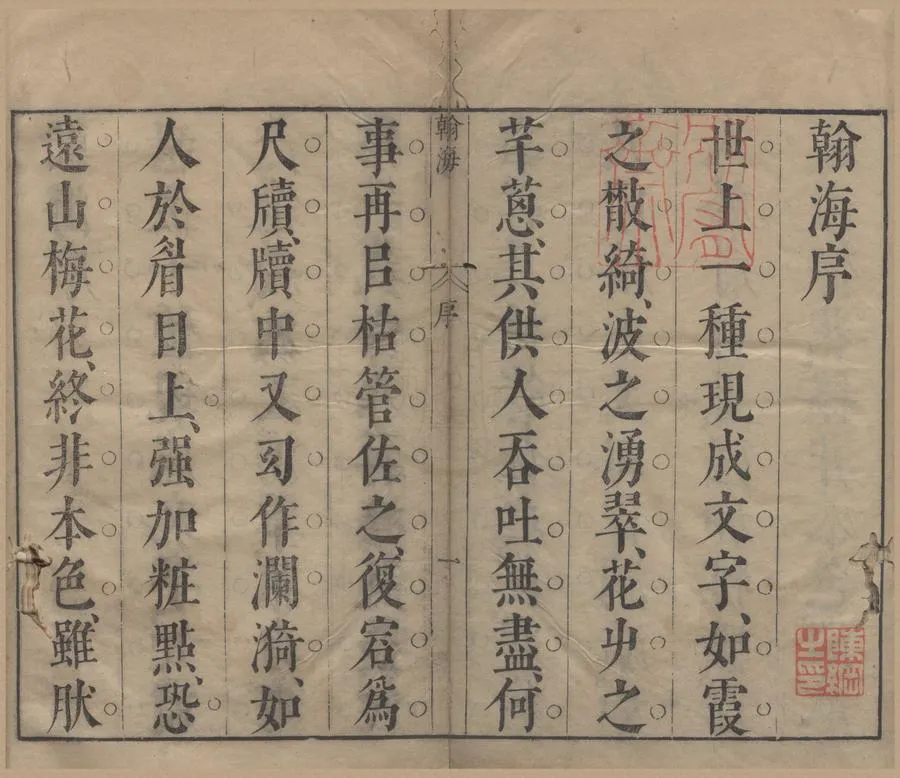 翰海序
世上一種現成文字、如霞
之散綺、波之湧翠、花屮之
芊蔥、其供人吞吐無盡、何
事再㠯枯管佐之、復宻爲
尺牘、牘中又幻作瀾漪、如
人於眉目上、强加粧點、恐
遠山梅花、終非本色、雖肰
翰海
序
一
陳綱之印